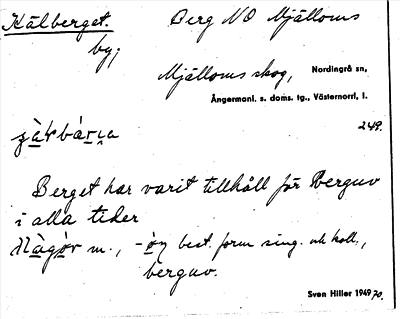 Kälberget. Berg NO Mjälloms
by;
Mjälloms skog, Nordingrå sn,
Ångermanl. s. doms. tg., Västernorrl. l.
249.
Berget har varit tillhåll för berguv
i alla tider
m., - best. form sing. och koll.,
berguv.
Sven Hiller 1949 70.